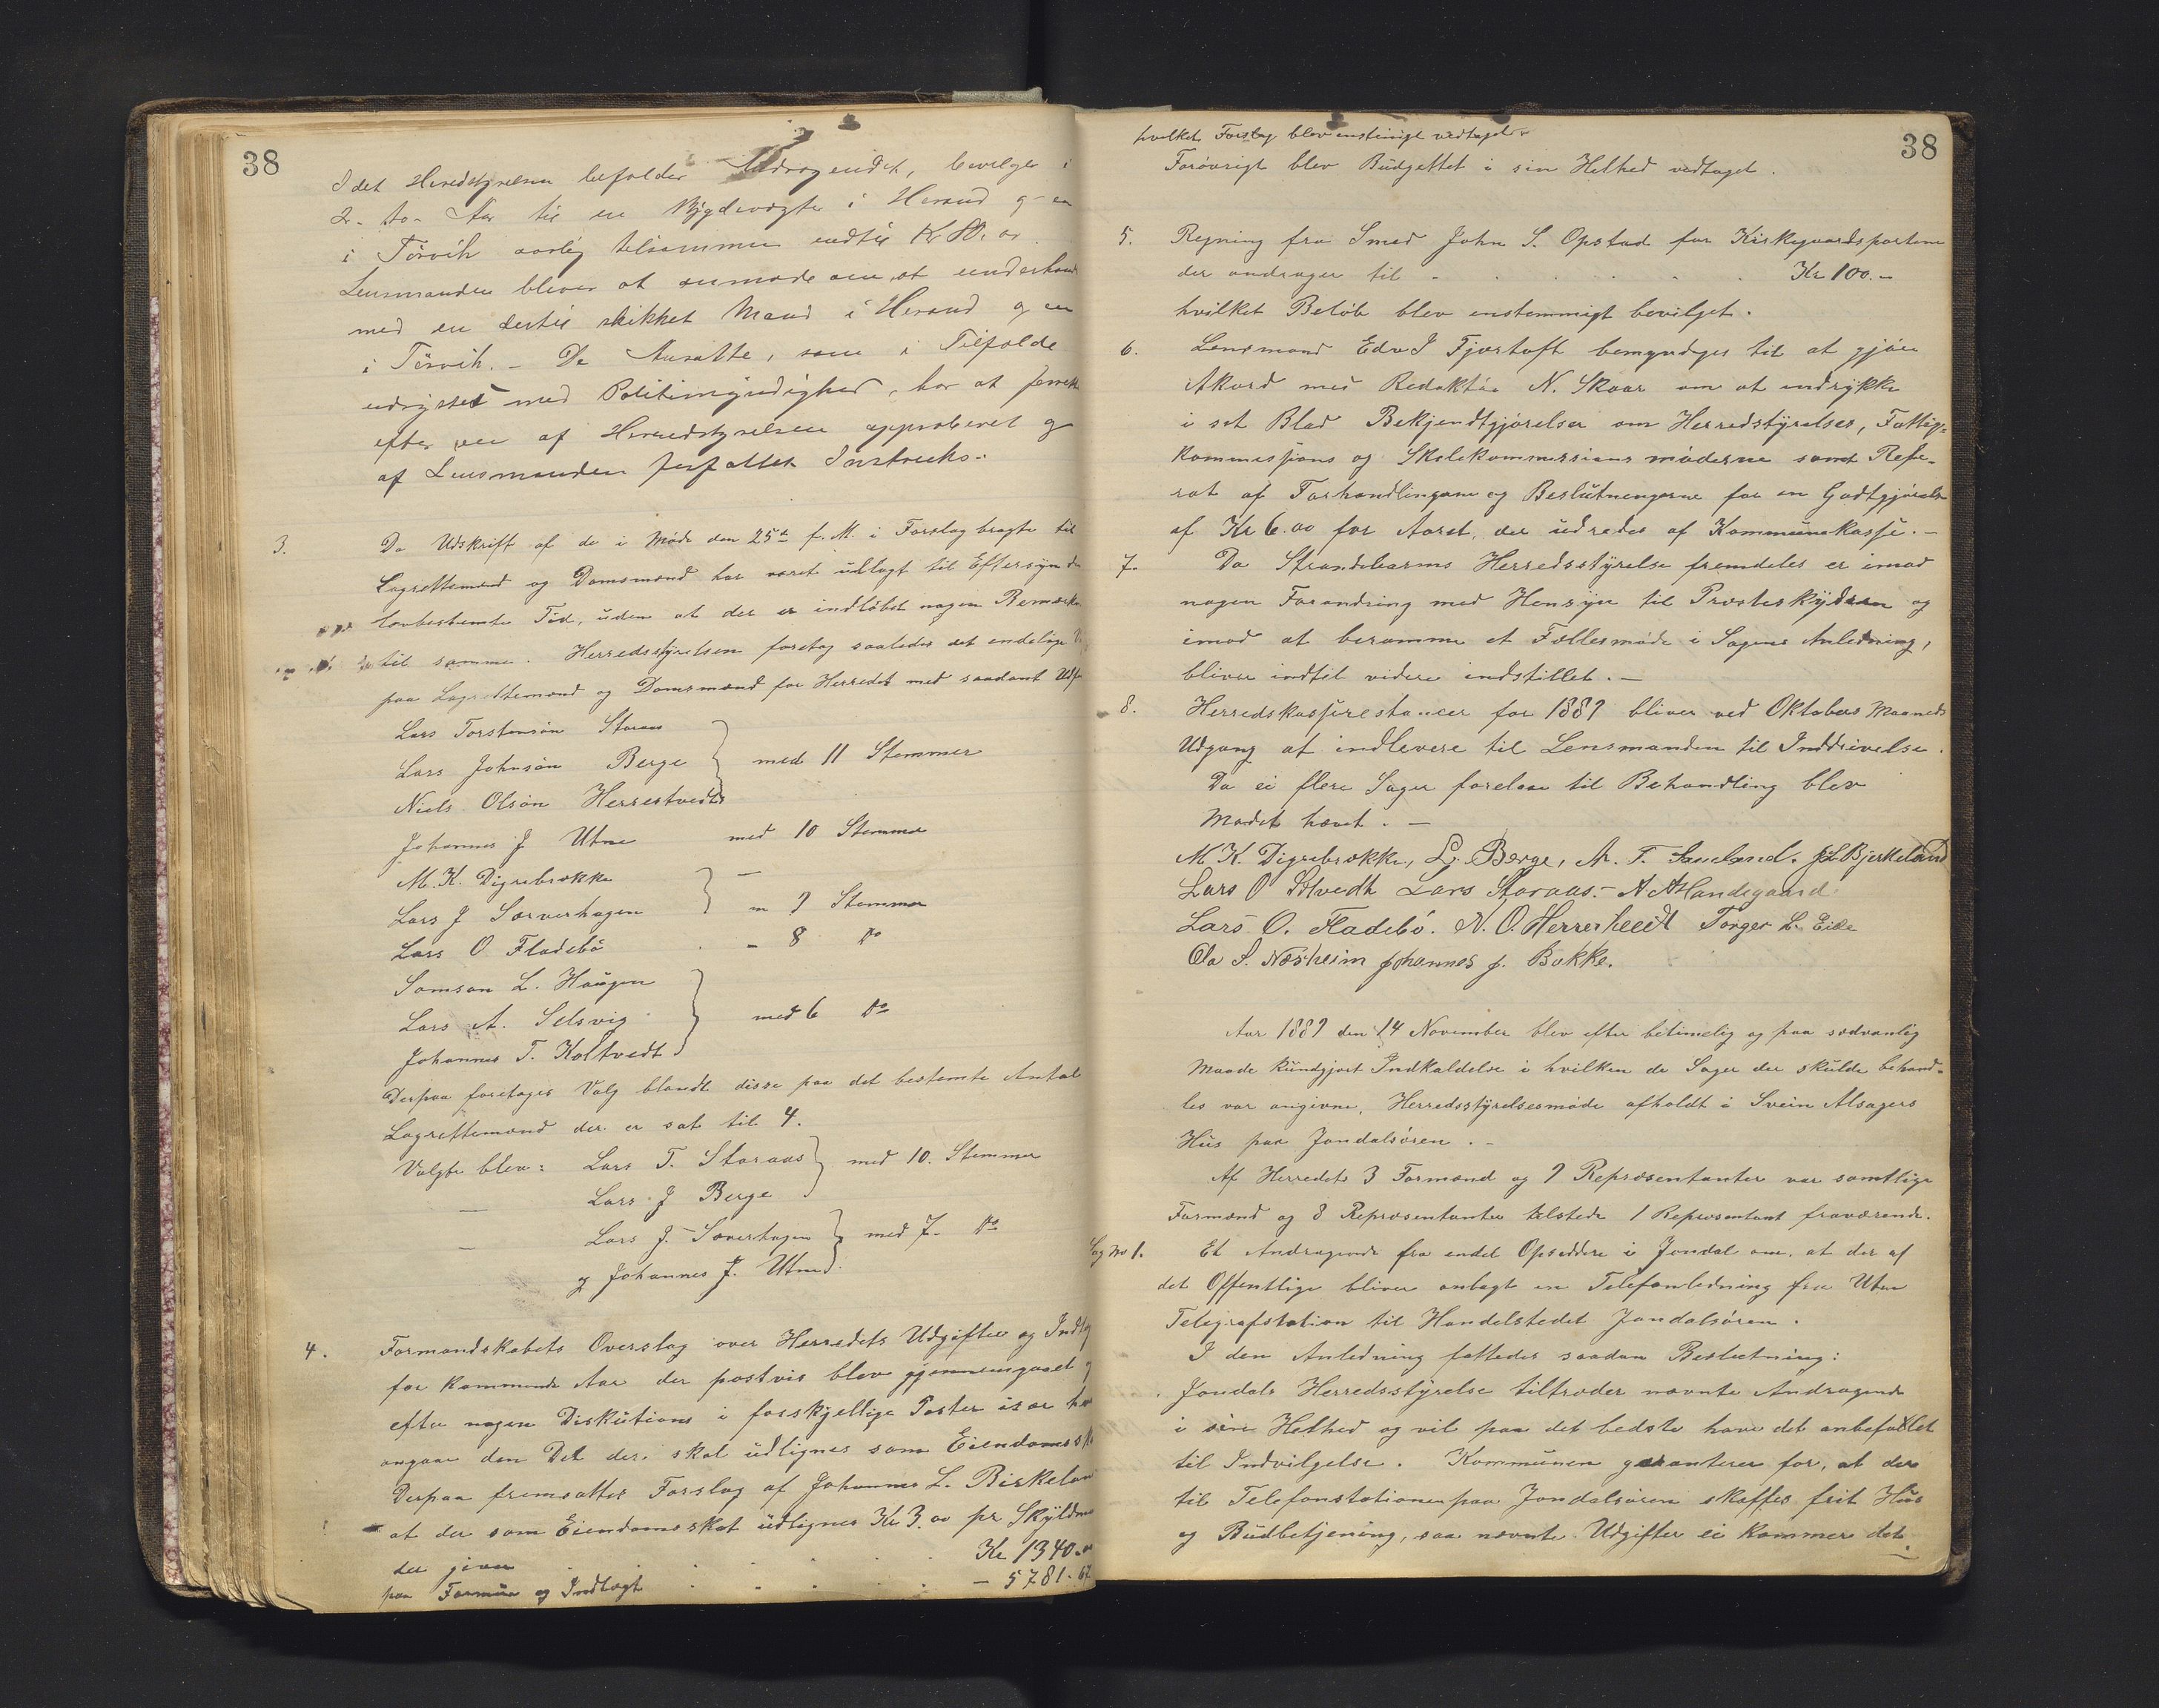 38
I det Heredstyrelsen befalder Andragendet, bevilges i
2- to- Aar til en Bygdevægter i Herand og en
i Törvik aarlig tilsammen indtil Kr 80.00
Lensmanden bliver at anmode om at underhand
med en dertil skikket Mand i Herand og en
i Törvik. - De Ansatte, som i Tilfælde
udrystes med Politimyndighed, har at
efter en af Herredstyrelsen approberet og
af Lensmanden forfattet Instruks.-
3. Da Udskrift af de i Möde den 25de f. M. i Forslag bragte til
Lagrettemænd og Domsmænd har været udlagt til Eftersyn
lovbestemte Tid, uden at der er indlöbet nogen
til samme. Herredsstyrelsen foretog saaledes det endelige
paa Lagrettemænd og Domsmænd for Herredet med saadant
Lars Torstensön Storaas
Lars Johnsön Berge } med 11 Stemmer
Niels Olsön Herrestvedt
Johannes J Utne med 10 Stemmer
M. K. Digrebrække
Lars J Sörverhagen } - 9 Stemmer
Lars O Fladebö - 8 do
Samson L. Haugen
Lars A. Selsvig } med 6 do
Johannes T. Koltvedt
Derpaa foretages Valg blandt disse paa det bestemte Antal
Lagrettemænd der er sat til 4.
Valgte blev: Lars T. Storaas } med 10. Stemmer
— Lars J Berge
— Lars J. Sæverhagen } med 7- do
og Johannes J. Utne
4. Formandskabets Overslag over Herredets Udgifter og Indtægt
for kommende Aar der postvis blev gjennemgaaet
efter nogen Diskution i forskjellige Poster især
angaar den Del der skal udlignes som Eiendomsskat
Derpaa fremsattes Forslag af Johannes L. Birkeland
at der som Eiendomsskat udlignes Kr 3.00 pr Skyldmark
der giver . . . . Kr 1340.00
paa Formue og Indtægt . . . . — 5781.67
38
hvilket Forslag blev enstemigt vedtaget.
Forövrigt blev Budgettet i sin Helhed vedtaget.
5. Regning fra Smed John S. Opstad for Kirkegaardsportene
der andrager til - . . . . . Kr 100.-
hvilket Belöb blev enstemmigt bevilget.
6. Lensmand Edv J Fjærtoft bemyndges til at gjöre
Akord med Redaktör N. Skaar om at indrykke
i sit Blad Bekjendtgjörelser om Herredstyrelses, Fattig=
kommissjons og Skolekommissions möderne samt Refe-
rat af Forhandlingene og Beslutningerne for en Godtgjörelse
af Kr 6.00 for Aaret, der udredes af Kommunekasse.-
7. Da Strandebarms Herredsstyrelse fremdeles er imod
nogen Forandring med Hensyn til Presteskydsen og
imod at beramme et Fællesmöde i Sagens Anledning,
bliver indtil videre indstillet.-
8. Herredskasserestancer for 1889 bliver ved Oktobers Maaneds
Udgang at indlevere til Lensmanden til Inddrivelse.
Da ei flere Sager forelaa til Behandling blev
Mödet hævet.-
M. K. Digrebrække, L. J. Berge, A. T. Samland. J L Bjerkeland
Lars O Solvedt Lars Storaas.- A A Handegaard.
Lars O. Fladebö. N. O. Herrestvedt Torger L. Eide
Ola S. Næsheim Johannes J. Bakke.
Aar 1889 den 14 November blev efter betimelig og paa sædvanlig
Maade kundgjort Indkaldelse i hvilken de Sager der skulde behand-
les var angivne, Herredsstyrelsesmöde afholdt i Svein Alsagers
Hus paa Jondalsören.-
Af Herredets 3 Formænd og 9 Repræsentanter var samtlige
Formænd og 8 Repræsentanter telstede 1 Repræsentant fraværende.
Sag No 1. Et Andragende fra endel Opsiddere i Jondal om, at der af
det Offentlige bliver anlagt en Telefonledning fra Utne
Telegrafstation til Handelstedet Jondalsören.
I den Anledning fattedes saadan Beslutning:
Jondals Herredsstyrelse tiltræder nævnte Andragende
i sin Helhed og vil paa det bedste have det anbefallet
til Indvilgelse. Kommunen garanterer for, at der
til Telefonstationen paa Jondalsören skaffes frit Hus
og Budbetjening, saa nævnte Udgifter ei kommer det